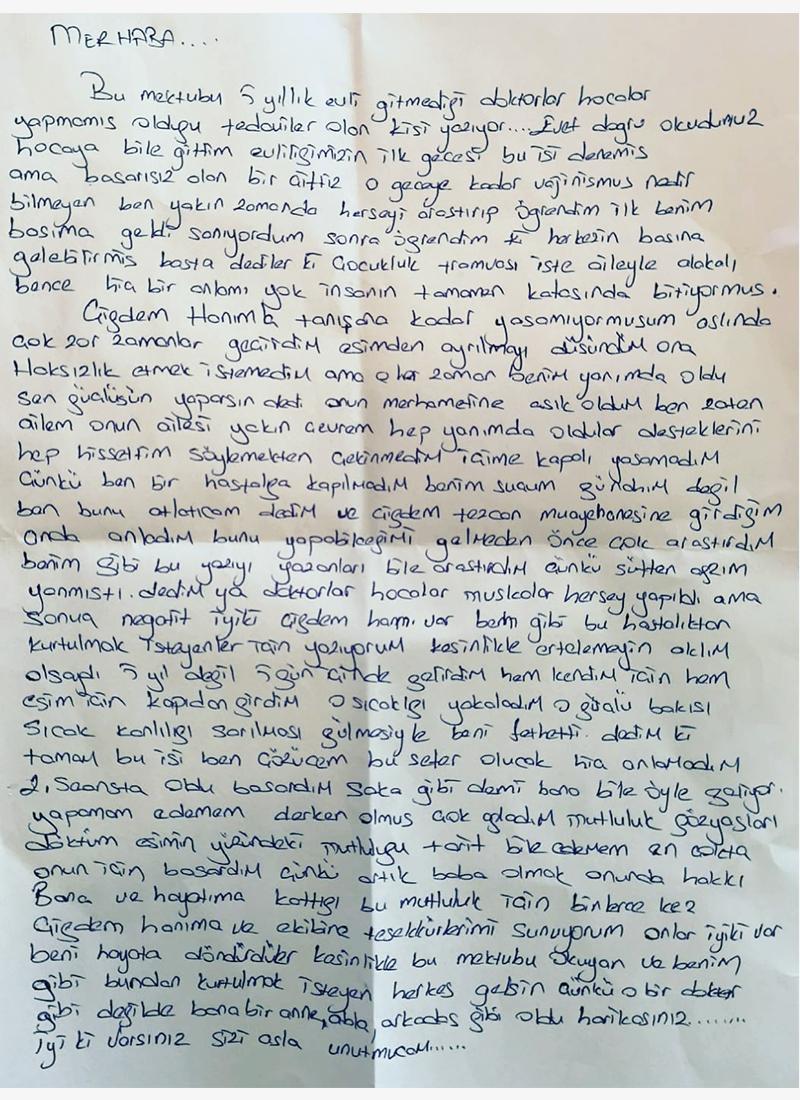 MERHABA....
Bu mektubu 5 yıllık evli gitmediği doktorlar hocalar
yapmamıs oldugu tedaviler olan kisi yazıyor.... Evet dogru okudunuz
hocaya bile gittim evliligimizin ilk gecesi bu isi denemis
ama basarısız olan bir çiftiz o geceye kadar vajinismus nedir
bilmeyen ben yakın zamanda herseyi arastırıp ögrendim ilk benim
basıma geldi sanıyordum sonra ögrendim ki herkezin basına
gelebilirmis basta dediler ki çocukluk tramvası iste aileyle alakalı
bence hiç bir anlamı yok insanın tamamen kafasında bitiyormus.
Çigdem Hanımla tanışana kadar yasamıyormusum aslında
çok zor zamanlar geçirdim esimden ayrılmayı düsündüm ona
Haksızlık etmek istemedim ama o her zaman benim yanımda oldu
sen güçlüsün yaparsın dedi onun merhametine asık oldum ben zaten
ailem onun ailesi yakın çevrem hep yanımda oldular desteklerini
hep hissettim söylemekten çekinmedim içime kapalı yasamadım
Çünkü ben bir hastalıga kapılmadım benim suçum günahım degil
ben bunu atlatıcam dedim ve çigdem tezcan muayehanesine girdiğim
anda anladım bunu yapabilecegimi gelmeden önce çok arastırdım
benim gibi bu yazıyı yazanları bile arastırdım çünkü sütten agzım
yanmıstı. dedim ya doktorlar hocalar muskalar hersey yapıldı ama
Sonuç negatif iyiki çigdem hanım var benim gibi bu hastalıktan
kurtulmak isteyenler için yazıyorum kesinlikle ertelemeyin aklım
olsaydı 5 yıl degil 5 gün içinde gelirdim hem kendim için hem
esim için kapıdan girdim o sıcaklıgı yakaladım o güçlü bakısı
Sıcak kanlılıgı sarılması gülmesiyle beni fethetti. dedim ki
tamam bu isi ben çözücem bu sefer olucak hiç anlamadım
2. Seansta oldu basardım saka gibi demi bana bile öyle geliyor.
yapamam edemem derken olmus çok agladım mutluluk gözyasları
döktüm esimin yüzündeki mutlulugu tarif bile edemem en çokta
onun için basardım çünkü artık baba olmak onunda hakkı
Bana ve hayatıma kattıgı bu mutluluk için binlerce kez
Çigdem hanıma ve ekibine tesekkürlerimi sunuyorum onlar iyiki var
beni hayata döndürdüler kesinlikle bu mektubu okuyan ve benim
gibi bundan kurtulmak isteyen herkes gelsin çünkü o bir doktor
gibi degilde bana bir anne, abla, arkadas gibi oldu harikasınız.......
iyi ki varsınız sizi asla unutmucam.....